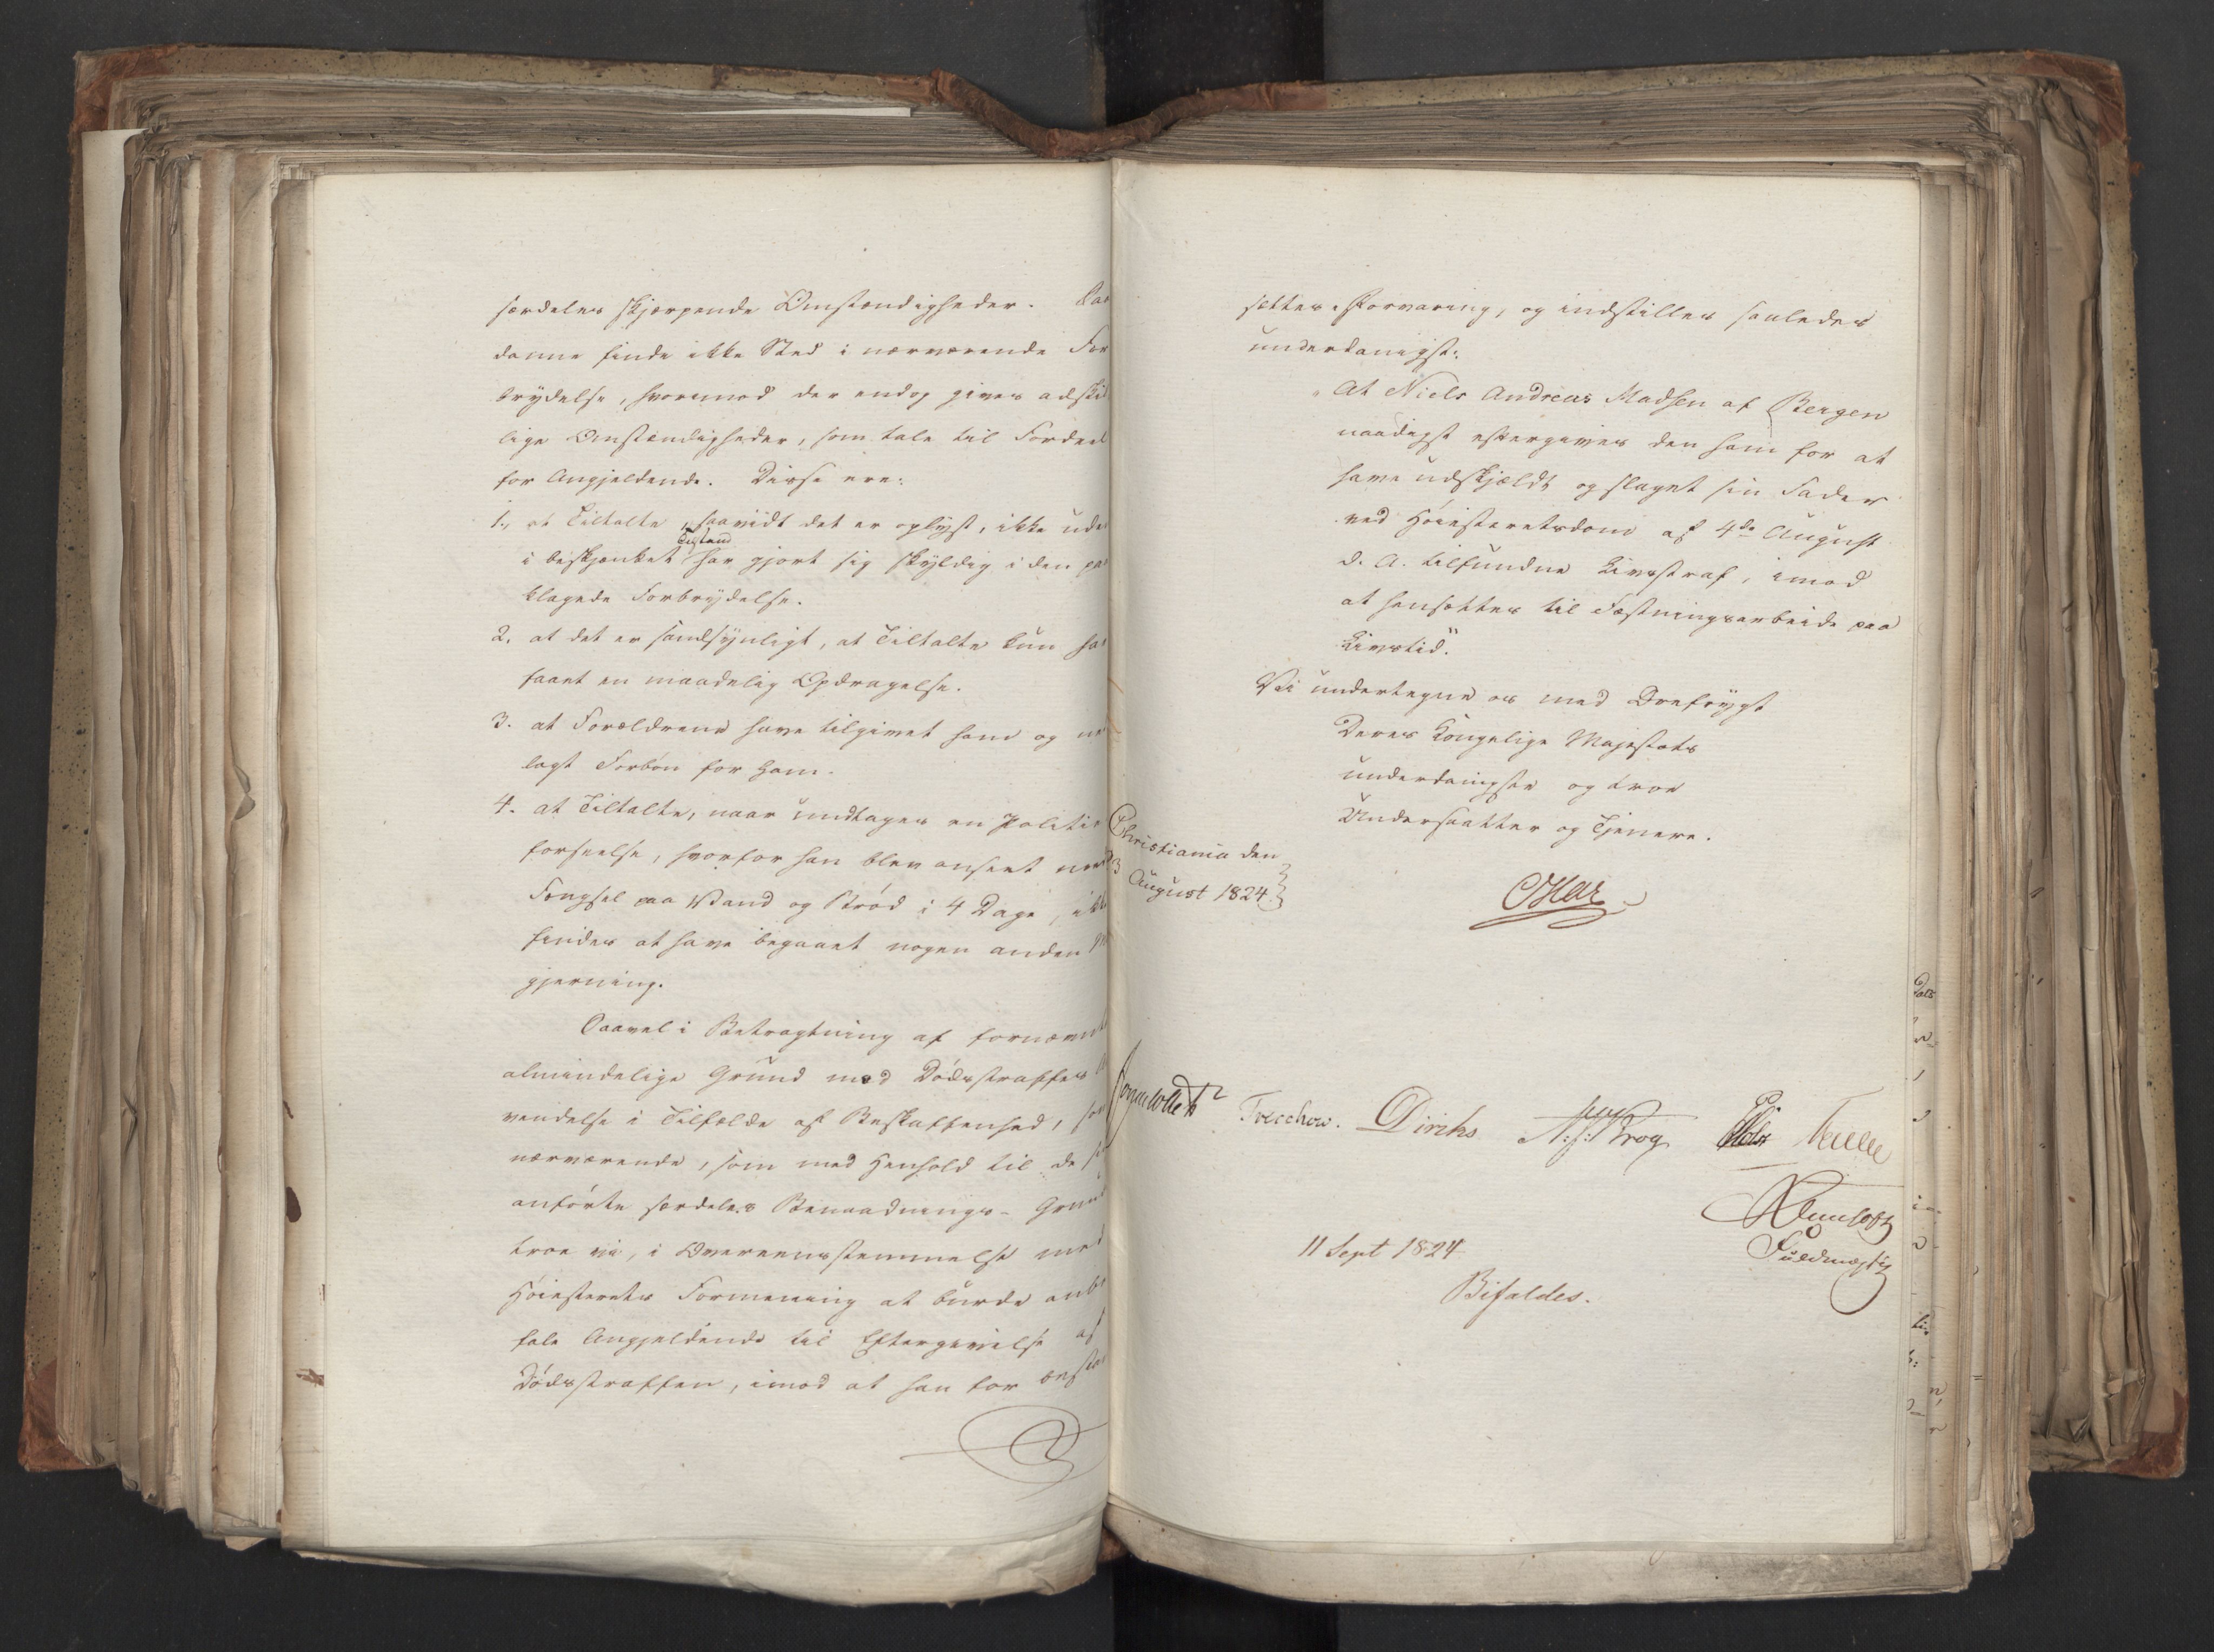 særdeles skjærpende Omstændigheder. Saa
danne finde ikke Sted i nærværende For
brydelse, hvorimod der endog gives adskil
lige Omstændigheder, som tale til Fordeel
for Angjeldende. Disse ere:
1., at Tiltalte, saavidt det er oplyst, ikke uden
Tilstand
i beskjenket har gjort sig skyldig i den paa
klagede Forbrydelse.
2. at det er sandsynligt, at Tiltalte kun har
faaet en maadelig Opdragelse.
3. at Forældrene have tilgivet ham og ned
lagt Forbøn for ham.
4. at Tiltalte, naar undtages en Politie
forseelse, hvorfor han blev anseet med
Fængsel paa Vand og Brød i 4 Dage, ikke
findes at have begaaet nogen anden Mis
gjerning.
Saavel i Betragtning af fornævnte
almindelige Grund mod Dødsstraffens An
vendelse i Tilfælde af Beskaffenhed, som
nærværende, som med Henhold til de
anførte særdeles Benaadnings-Grunde
troe vi, i Overeensstemmelse med
Høiesterets Formening at burde anbe
fale Angjeldende til Eftergivelse af
Dødsstraffen, imod at han for
sættes Forvaring, og indstilles saaledes
underdanigst:
"At Niels Andreas Madsen af Bergen
naadigst eftergives den ham for at
have udskjældt og slaget sin Fader
ved Høiesteretsdom af 4de August
d. A. tilfundne Livsstraf, imod
at hensættes til Fæstningsarbeide paa
Livstid."
Vi undertegne os med Ærefrygt
Deres Kongelige Majestæts
underdanigste og troe
Undersaatter og Tjenere.
Christiania den
August 1824.
Treschow. Diriks N:J:Krog
Fuldmægtig
11 Sept 1824
Bifaldes.